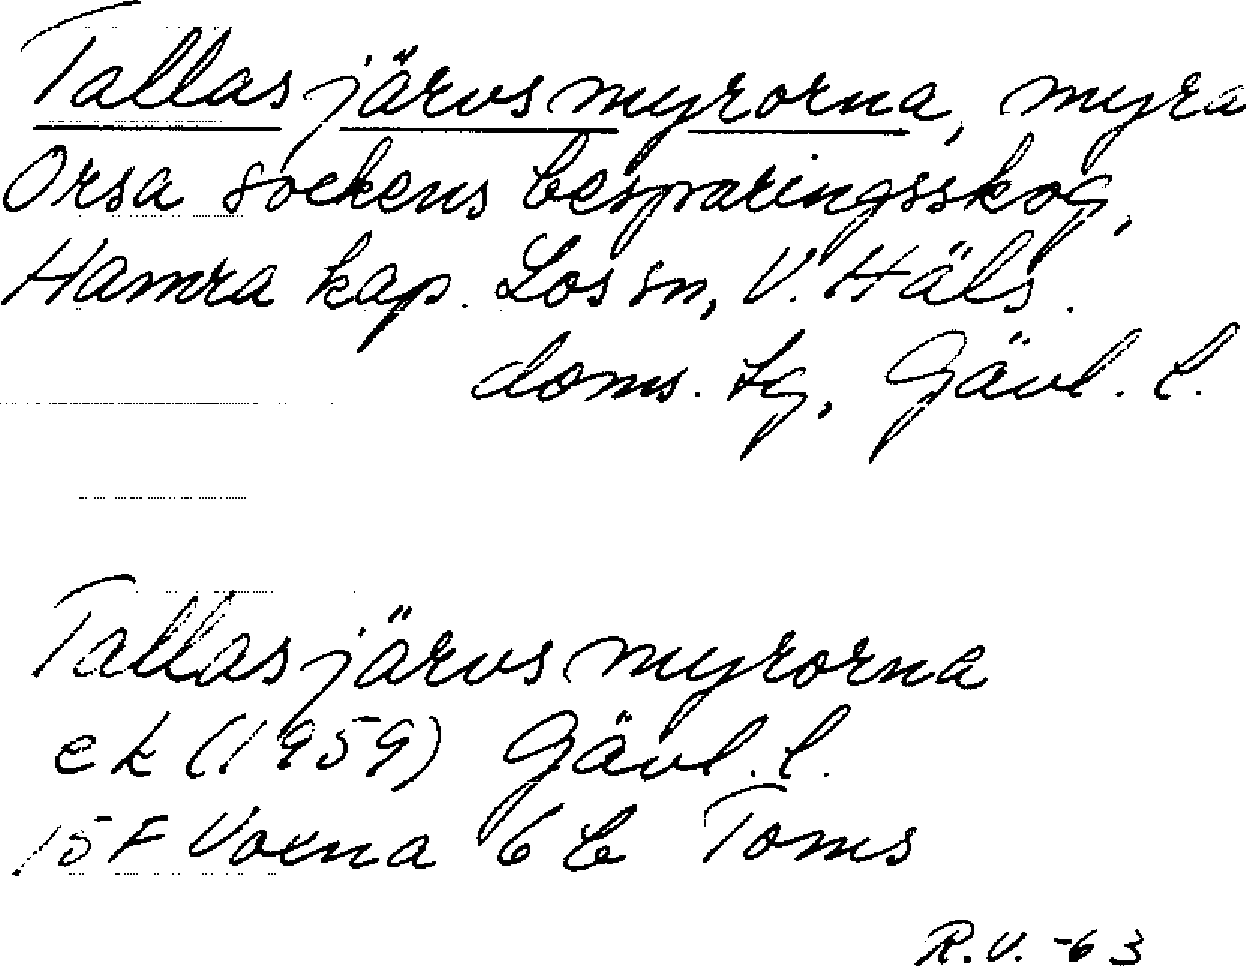 Tallasjärvsmyrorna, myra
Orsa sockens besparingsskog,
Hamra kap. Los sn, V. Häls.
doms. tg, Gävl. l.
Tallasjärvsmyrorna
ek (1959) Gävl. l.
15F Voxna 6b Toms
R.V. -63